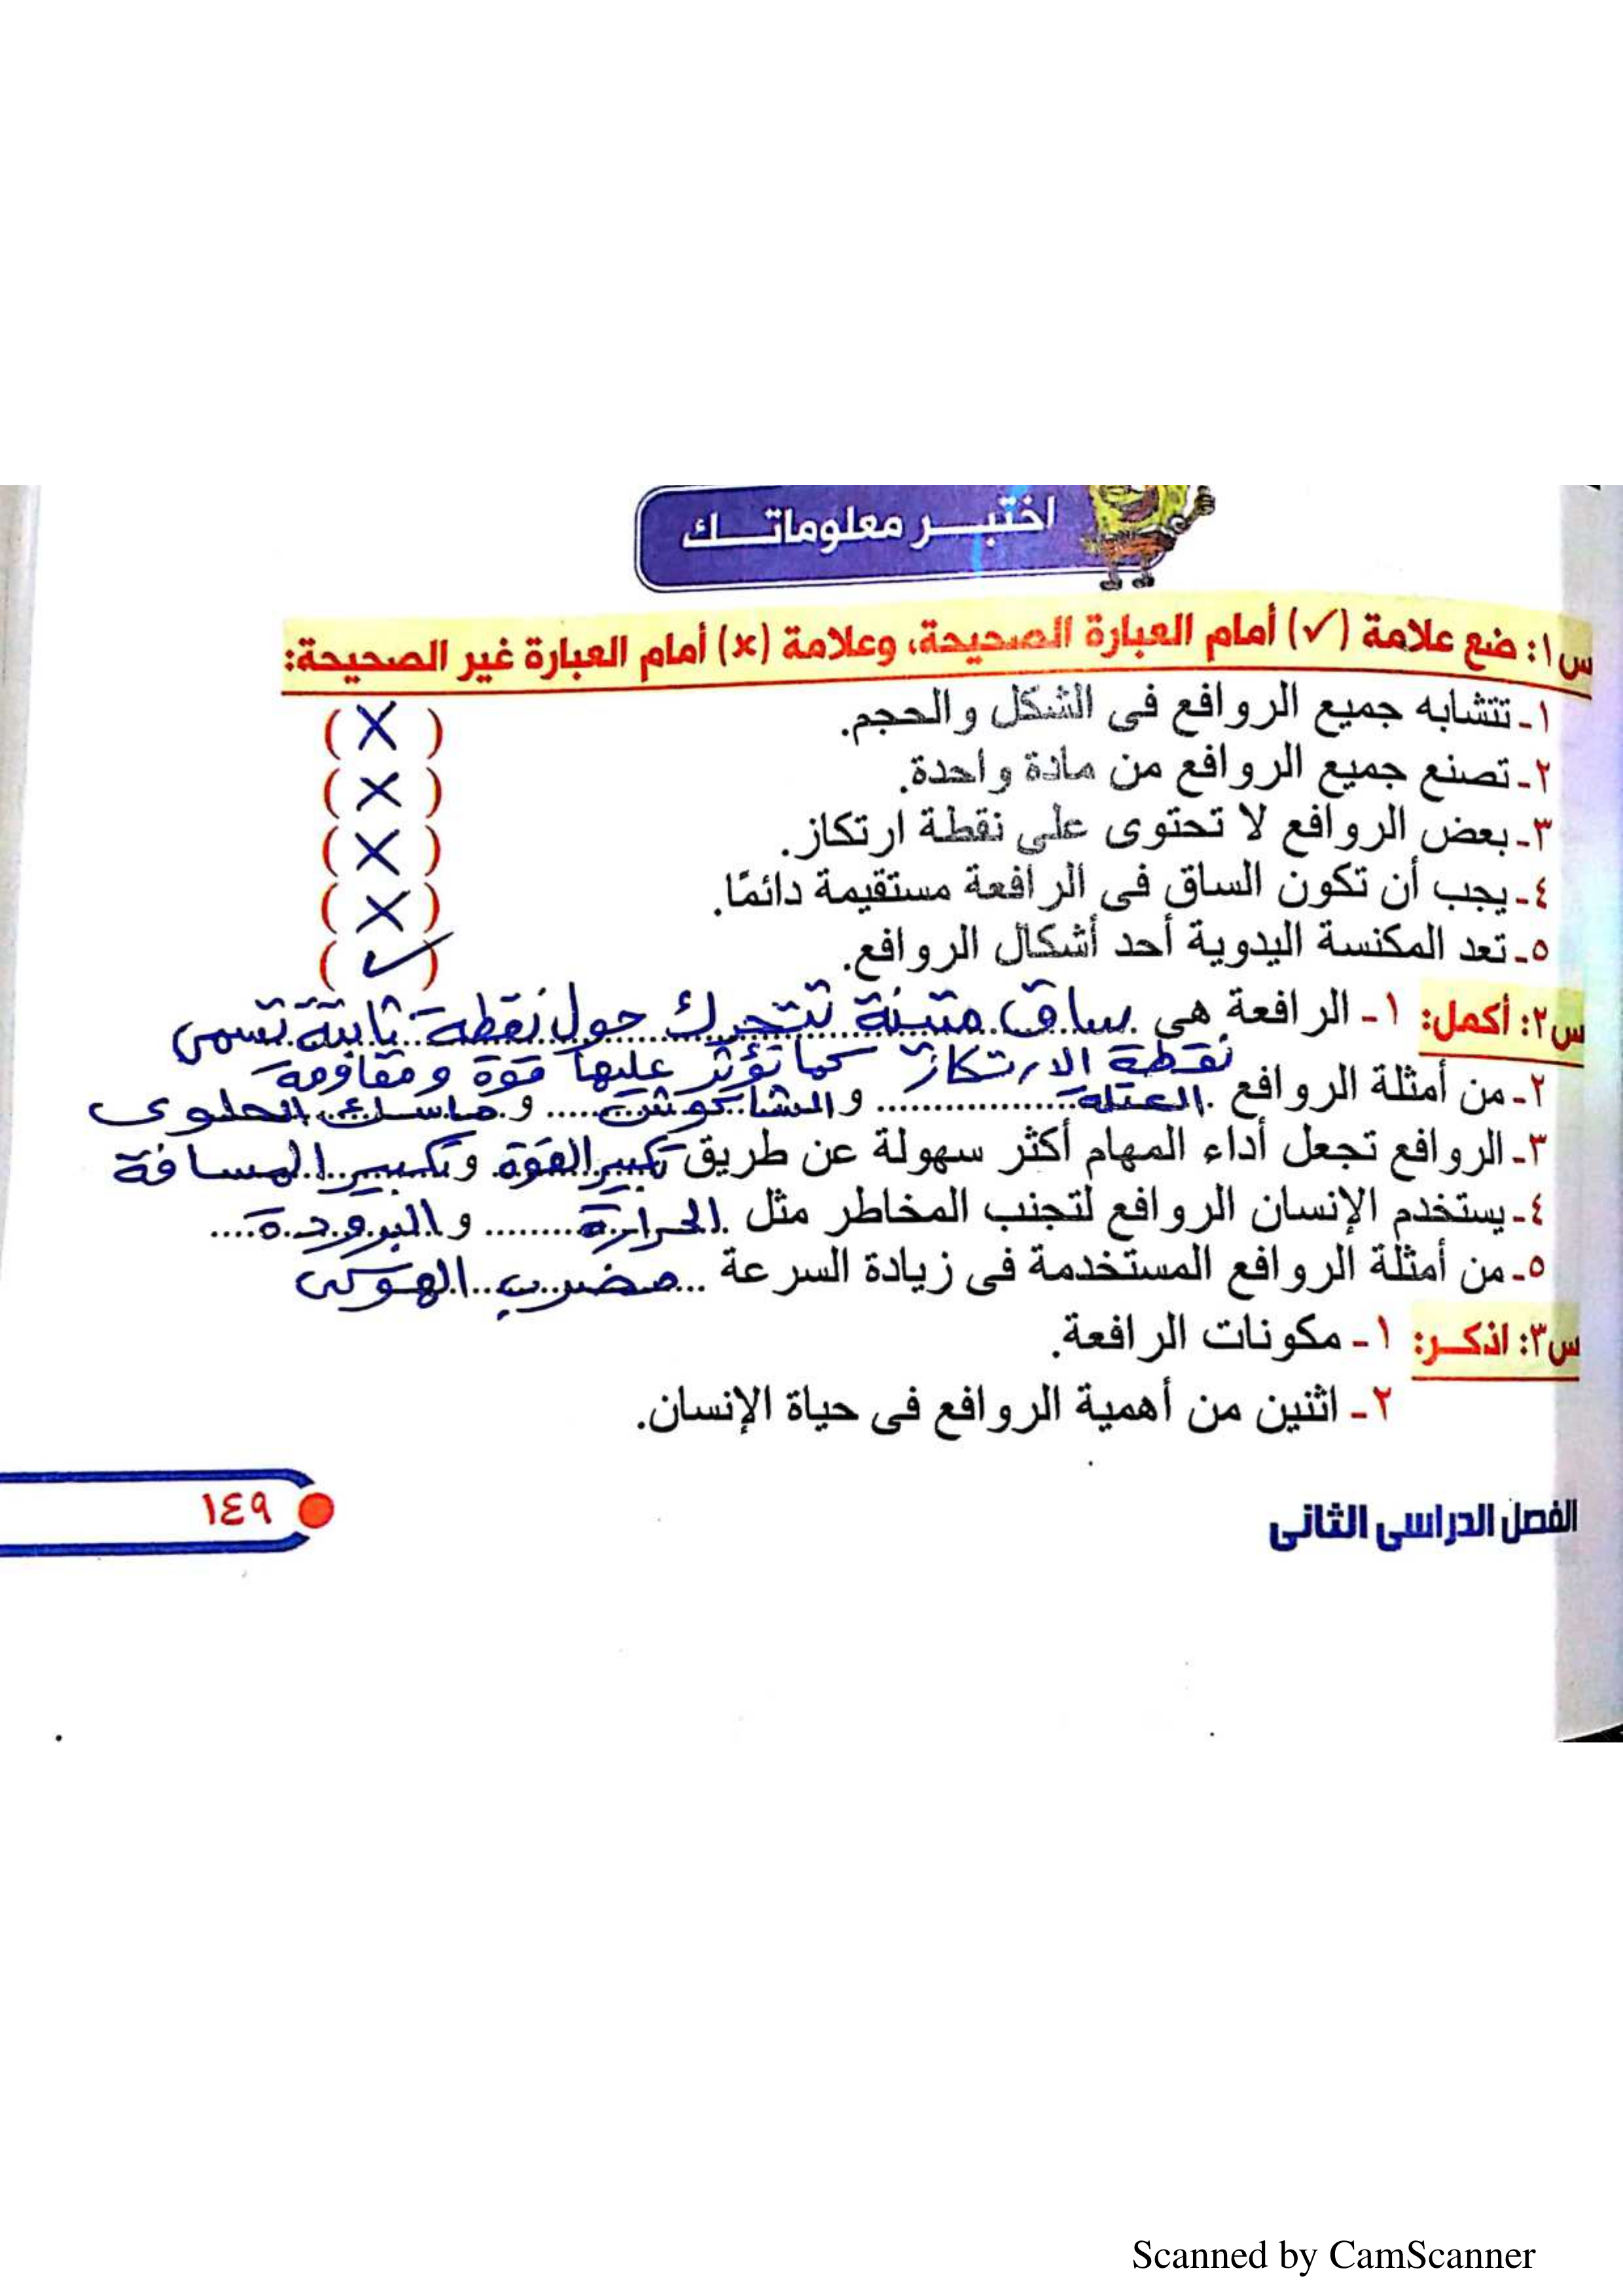 اختبر معلوماتك
س١: ضع علامة (✓) أمام العبارة الصحيحة، وعلامة (×) أمام العبارة غير الصحيحة:
١- تتشابه جميع الروافع فى الشكل والحجم. (X)
٢- تصنع جميع الروافع من مادة واحدة. (X)
٣- بعض الروافع لا تحتوى على نقطة ارتكاز. (X)
٤- يجب أن تكون الساق فى الرافعة مستقيمة دائمًا. (X)
٥- تعد المكنسة اليدوية أحد أشكال الروافع. (✓)
س٢: أكمل: ١- الرافعة هى ساق متينة تتحرك حول نقطة ثابتة تسمى
نقطة الارتكاز كما تؤثر عليها قوة ومقاومة
٢- من أمثلة الروافع العتلة والشاكوش وماسك الحلوى
٣- الروافع تجعل أداء المهام أكثر سهولة عن طريق تكبير القوة وتكبير المسافة
٤- يستخدم الإنسان الروافع لتجنب المخاطر مثل الحرارة والبرودة
٥- من أمثلة الروافع المستخدمة فى زيادة السرعة مضرب الهوكى
س٣: اذكر: ١- مكونات الرافعة.
٢- اثنين من أهمية الروافع فى حياة الإنسان.
الفصل الدراسى الثانى
١٤٩
Scanned by CamScanner